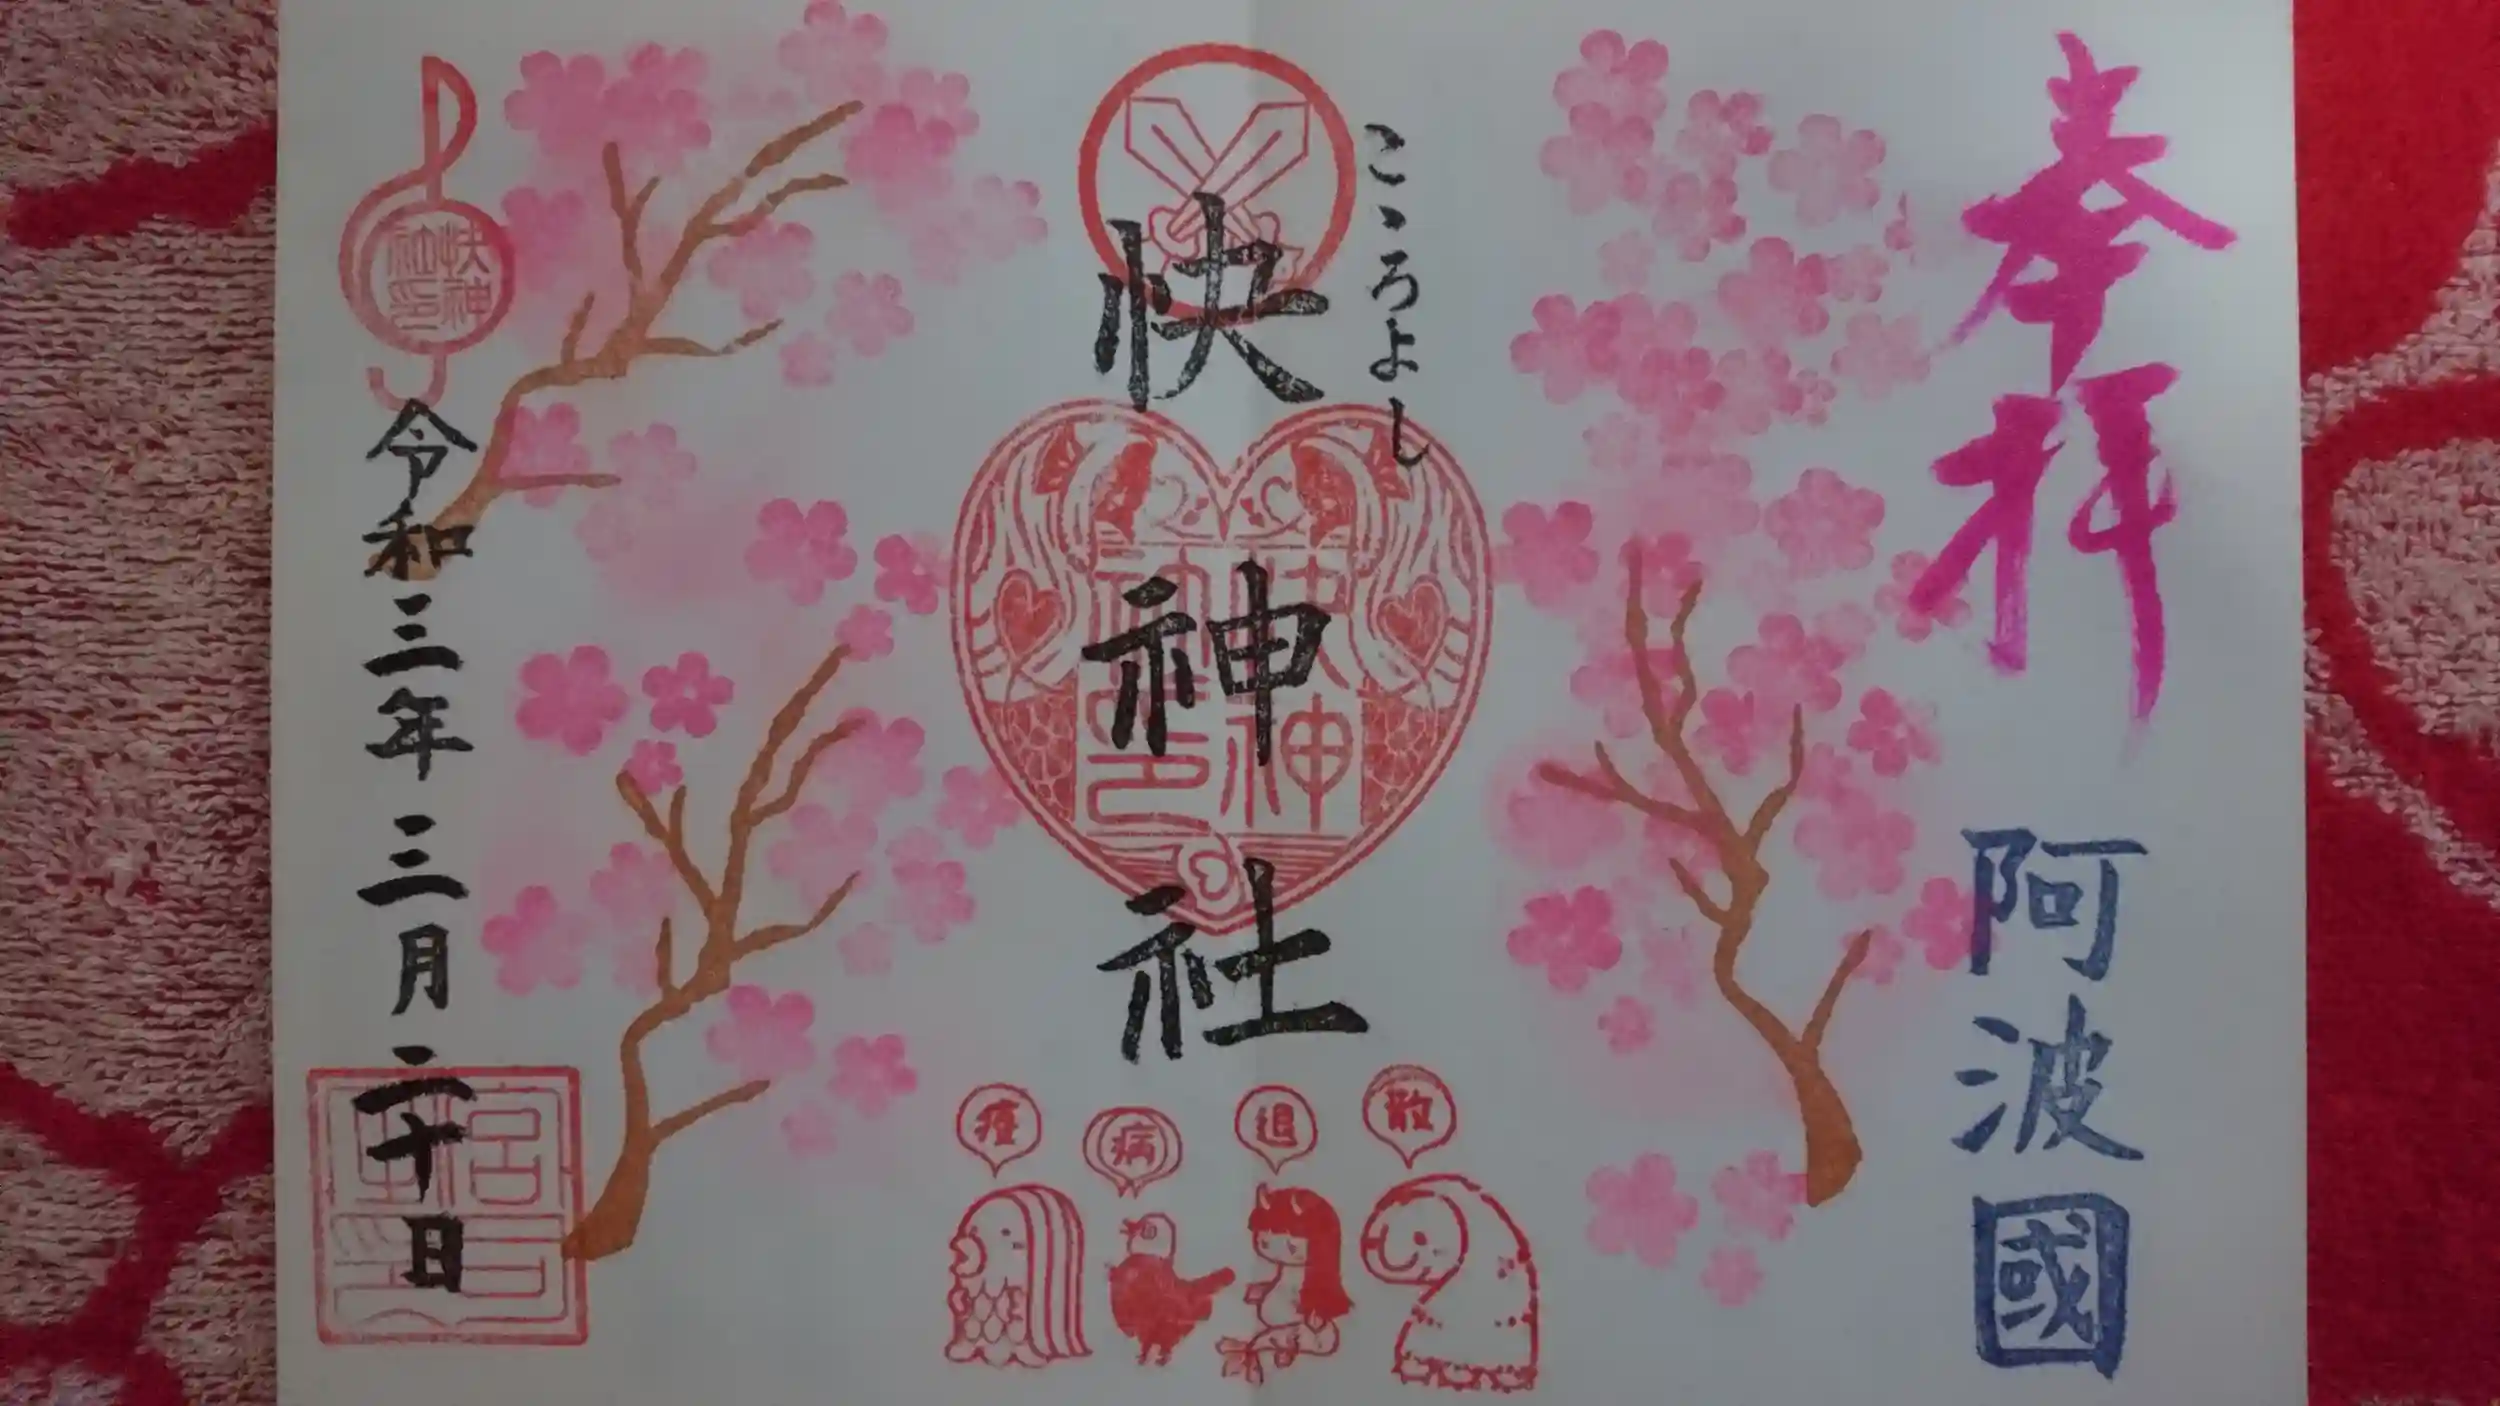 奉拝
阿波國
こゝろよし
快神社
快神社印
疫
病
退
散
快神社印
令和三年三月二十日